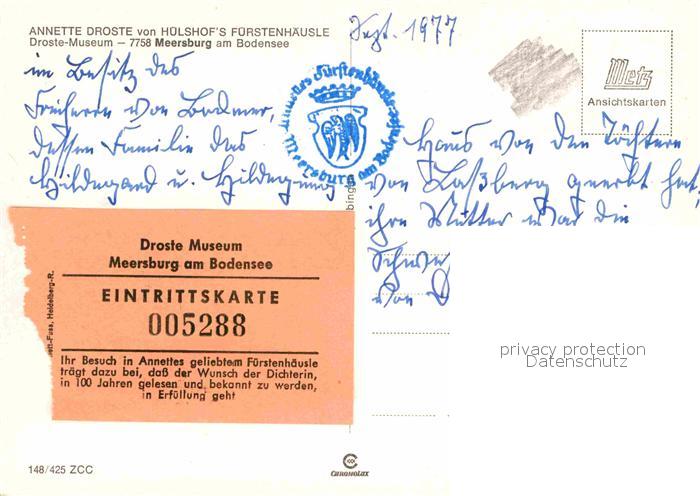 ANNETTE DROSTE von HÜLSHOF'S FÜRSTENHÄUSLE
Droste-Museum — 7758 Meersburg am Bodensee
Sept. 1977
im Besitz des
Freiherrn von Bodmer,
dessen Familie das
Hildegard u. Hildegung
Annettes Fürstenhäusle
Meersburg am Bodensee
Metz
Ansichtskarten
Haus von den Töchtern
von Laßberg geerbt hat,
ihre Mutter war die
Schwe
von D
Droste Museum
Meersburg am Bodensee
EINTRITTSKARTE
005288
Ihr Besuch in Annettes geliebtem Fürstenhäusle
trägt dazu bei, daß der Wunsch der Dichterin,
in 100 Jahren gelesen und bekannt zu werden,
in Erfüllung geht
Fuss, Heidelberg-R.
bing
privacy protection
Datenschutz
148/425 ZCC
CHROMOLUX